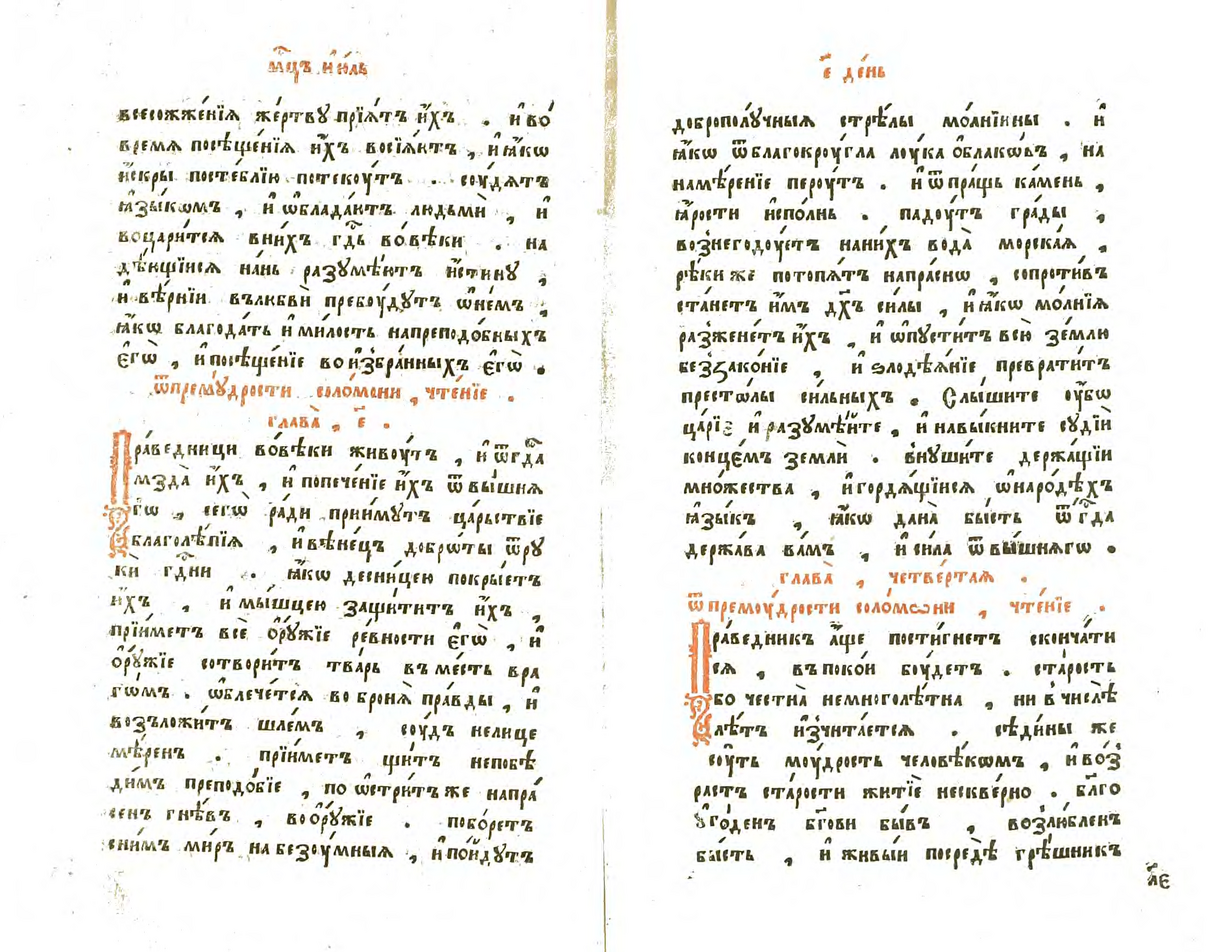 мⷭ҇цъ и҆ю́ль
всесожже́нїѧ же́ртвꙋ прїѧ́тъ и҆̀хъ . и҆ во́
время посѣще́нїѧ и҆̀хъ восїѧ́ютъ , и҆ ꙗ҆́кѡ
и҆́скры постеблїю потекꙋ́тъ . сꙋ́дѧтъ
ꙗ҆зы́кѡмъ , и҆ ѡ҆блада́ютъ людьмѝ , и҆
воцари́тсѧ вни́хъ гдⷭ҇ь во́вѣки . на
дѣ́ющїисѧ на́нь разꙋмѣ́ютъ и҆́стинꙋ ,
и҆ вѣ́рнїи вълюбвѝ пребꙋ́дꙋтъ ѡ҆не́мъ ,
ꙗ҆́кѡ благода́ть и҆ ми́лость напреподо́бныхъ
є҆гѡ̀ , и҆ посѣще́нїе во и҆збра́нныхъ є҆гѡ̀ .
ѿ премꙋ́дрости соломони , чте́нїе .
глава̀ , є҃ .
Пра́ведници во́вѣки живꙋ́тъ , и҆ ѿ гдⷭ҇а
мзда̀ и҆̀хъ , и҆ попече́нїе и҆̀хъ ѿ вы́шнѧ
гѡ , сегѡ̀ ра́ди прии́мꙋтъ ца́рьствїе
благолѣ́пїѧ , и҆ вѣне́цъ добро́ты ѿ рꙋ
кѝ гдⷭ҇ни . ꙗ҆́кѡ десни́цею покры́етъ
и҆̀хъ , и҆ мы́шцею защи́титъ и҆̀хъ ,
прїи́метъ всѐ ѻ҆рꙋ́жїе ре́вности є҆гѡ̀ , и҆
ѻ҆рꙋ́жїе сотвори́тъ тва́рь въ ме́сть вра
гѡ́мъ . ѡ҆блече́тсѧ во бронѧ̀ пра́вды , и҆
возъложи́тъ шле́мъ , сꙋ́дъ нелице
мѣ́ренъ . прїи́метъ щи́тъ непобѣ
ди́мъ преподо́бїе , по ѡ҆стри́тъ же напра́
сенъ гнѣ́въ , во ѻ҆рꙋ́жїе . побо́ретъ
сни́мъ ми́ръ на безꙋ́мныѧ , и҆ по́йдꙋтъ
є҃ де́нь
доброполꙋ́чныѧ стрѣ́лы мо́лнїины . и҆
ꙗ҆́кѡ ѿ благокрꙋ́гла лꙋ́ка ѻ҆́блакѡвъ , на
намѣ́ренїе перꙋ́тъ . и҆ ѿ пра́щь ка́мень ,
ꙗ҆́рости и҆спо́лнь . падꙋ́тъ гра́ды ,
вознегодꙋ́етъ нани́хъ вода̀ морска́ѧ ,
рѣ́ки же потопѧ́тъ напра́снѡ , сопроти́въ
ста́нетъ и҆̀мъ дх҃ъ си́лы , и҆ ꙗ҆́кѡ мо́лнїѧ
разжене́тъ и҆̀хъ , и҆ ѡ҆пꙋсти́тъ всю̀ зе́млю
беззако́нїе , и҆ ѕлодѣ́ѧнїе преврати́тъ
престо́лы си́льныхъ . Слы́шите ᲂу҆̀бѡ
ца́рїе и҆ разꙋмѣ́йте , и҆ навы́кните сꙋдїѝ
конце́мъ землѝ . внꙋши́те держа́щїи
мно́жества , и҆ гордѧ́щїисѧ ѡ҆наро́дѣхъ
ꙗ҆зы́къ , ꙗ҆́кѡ дана̀ бы́сть ѿ гдⷭ҇а
держа́ва ва́мъ , и҆ си́ла ѿ вы́шнѧгѡ .
глава̀ , четве́ртаѧ .
ѿ премꙋ́дрости соло́мѡни , чте́нїе .
Пра́ведникъ а҆́ще пости́гнетъ сконча́ти
сѧ , въ поко́и бꙋ́детъ . ста́рость
бо честна̀ немноголѣ́тна , ни в числѣ̀
лѣ́тъ и҆зчита́етсѧ . сѣди́ны же
сꙋ́ть мꙋ́дрость человѣ́кѡмъ , и҆ во́з
растъ ста́рости житїѐ нескве́рно . бл҃го
ꙋго́денъ бг҃ови бы́въ , возлю́бленъ
бы́сть , и҆ живы́и посредѣ̀ грѣ́шникъ
л҃є